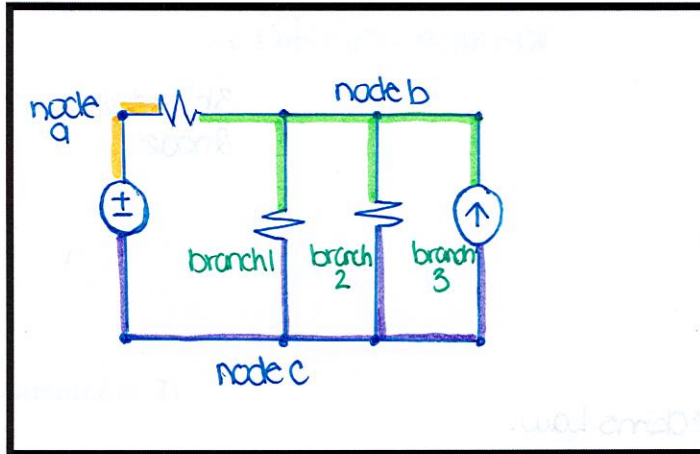 node
a
node b
±
↑
branch1
branch
2
branch
3
node c